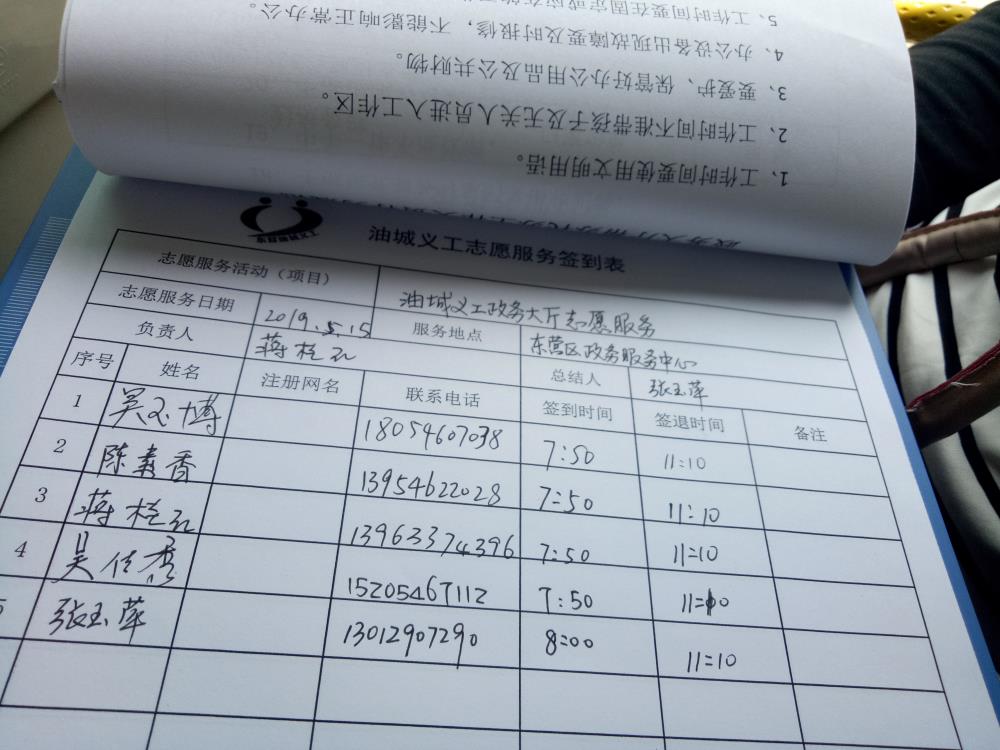 5、工作时间要在固定
4、办公设备出现故障要及时报修，不能影响正常办公。
3、要爱护、保管好办公用品及公共财物。
2、工作时间不准带孩子及无关人员进入工作区。
1、工作时间要使用文明用语。
东营油城义工
油城义工志愿服务签到表
志愿服务活动（项目） 油城义工政务大厅志愿服务
志愿服务日期 2019.5.15 服务地点 东营区政务服务中心
负责人 蒋栓孔 总结人 张玉萍
序号 姓名 注册网名 联系电话 签到时间 签退时间 备注
1 吴玉博 18054607038 7:50 11:10
2 陈素香 13954622028 7:50 11:10
3 蒋栓孔 13963374396 7:50 11:10
4 吴传秀 15205467112 7:50 11:10
5 张玉萍 13012907290 8:00 11:10